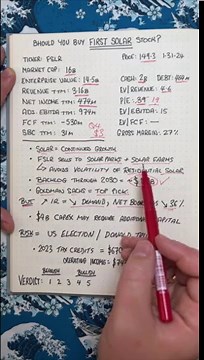 SHOULD YOU BUY FIRST SOLAR STOCK?
TICKER: FSLR
PRICE: 149.3 1-31-24
MARKET CAP: 16B
CASH: 2B DEBT:
ENTERPRISE VALUE: 14.5B
EV/REVENUE: 4.6
REVENUE TTM: 3.16B
P/E: 39
NET INCOME TTM: 474M
EV/EBITDA: 15
ADJ. EBITDA TTM: 974M
EV/FCF: —
FCF TTM: -530M
SBC TTM: 31M
GROSS MARGIN: 27%
• SOLAR = CONTINUED GROWTH
• FSLR SELLS TO SOLAR PARKS + SOLAR FARMS
↳ AVOIDS VOLATILITY OF RESIDENTIAL SOLAR
• BACKLOG THROUGH 2030 =
• GOLDMAN SACHS = TOP PICK
BUT ↗ IR = ↘ DEMAND, NET BOOKINGS ↘ 36%
• $4B CAPEX MAY REQUIRE ADDITIONAL CAPITAL
RISK = US ELECTION / DONALD
• 2023 TAX CREDITS =
OPERATING INCOME =
BEARISH BULLISH
VERDICT: 1 2 3 4 5